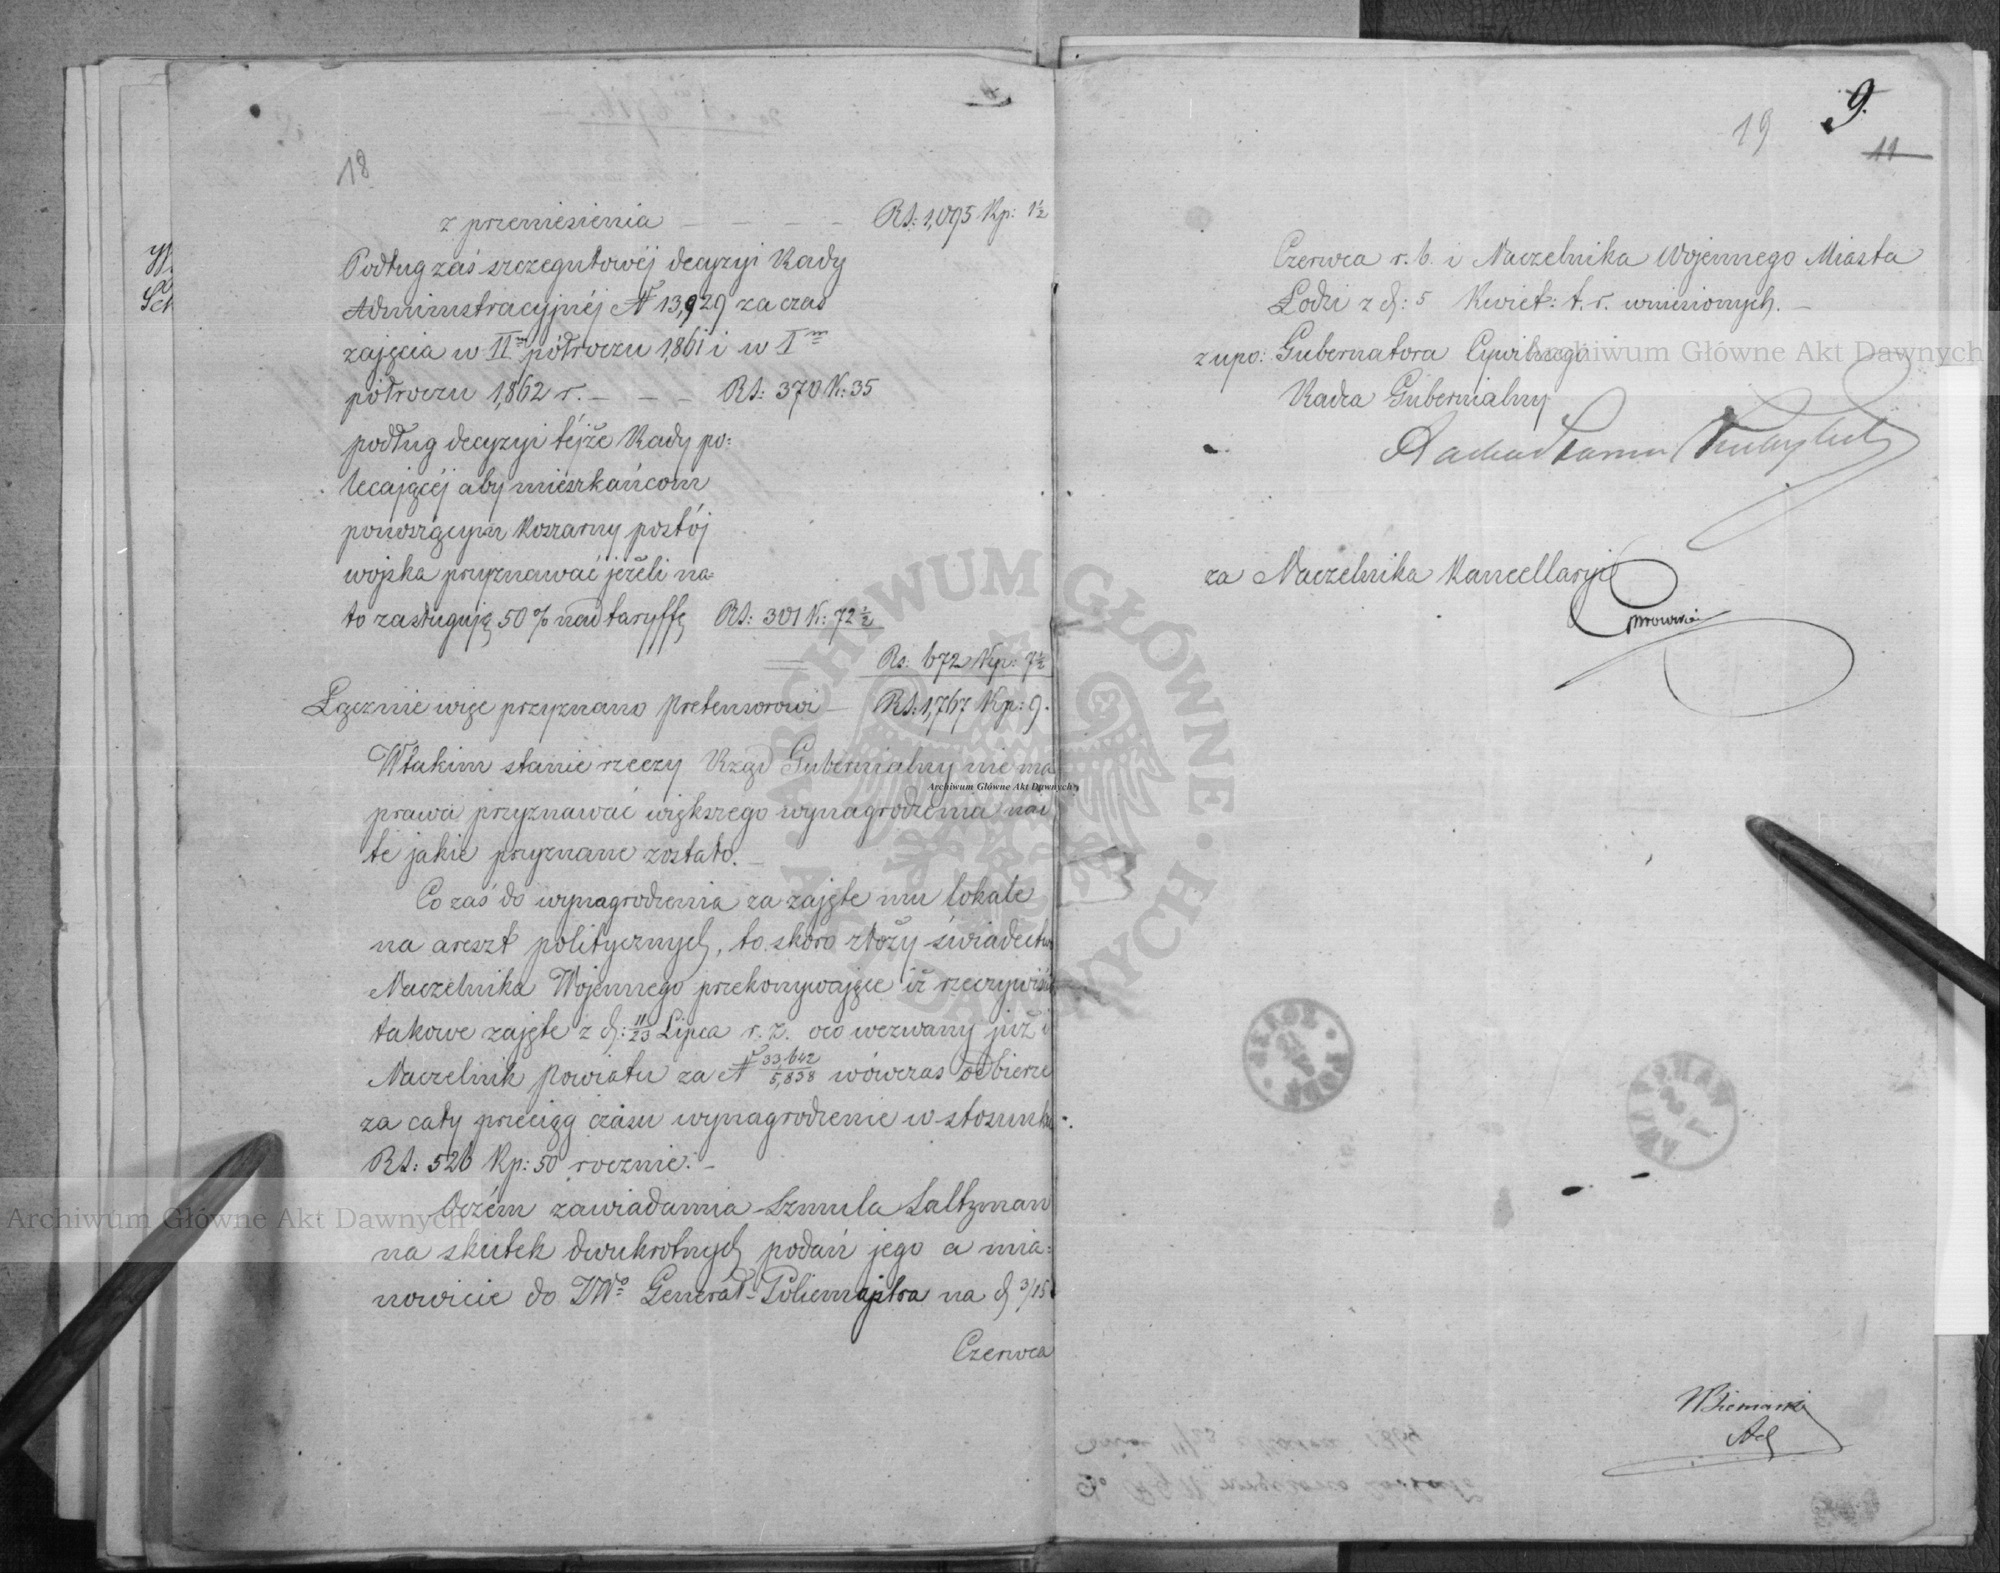 18
z przeniesienia — — — — Rs: 1,095 Kp: 1½
Podług zaś szczegułowéj decyzyi Rady
Administracyjnéj № 13,929 za czas
zajęcia w IIm półroczu 1,861 i w Im
półroczu 1,862 r. — — — Rs: 370 K: 35
podług decyzyi téjże Rady po:
lecającéj aby mieszkańcom
ponoszącym koszarny postój
wojska przyznawać jeżeli na:
to zasługują 50% nad taryffę Rs: 301 K: 72½
Rs: 672 Kp: 7½
Łącznie więc przyznano pretensorowi — Rs: 1,767 Kp: 9.
W takim stanie rzeczy Rząd Gubernialny nie ma
prawa przyznawać większego wynagrodzenia nad
te jakie przyznane zostało. —
Co zaś do wynagrodzenia za zajęte mu lokale
na areszt politycznych, to skoro złoży świadectwo
Naczelnika Wojennego przekonywające iż rzeczywiście
takowe zajęte z d: 11/23 Lipca r. z. oco wezwany już i
Naczelnik Powiatu za № 33,642/5,838 wówczas odbierze
za cały przeciąg czasu wynagrodzenie w stosunku
Rs: 526 Kp: 50 rocznie. —
Oczém zawiadamia Szmula Saltzman
na skutek dwukrotnych podań jego a mia:
nowicie do JWo Generał-Policmajstra na d 3/15
Czerwca
19
9.
11
Czerwca r. b. i Naczelnika Wojennego Miasta
Łodzi z d: 5 Kwiet: t. r. wniesionych. —
z upo: Gubernatora Cywilnego
Radca Gubernialny
za Naczelnika Kancellaryi
Archiwum Główne Akt Dawnych
Archiwum Główne Akt Dawnych
Archiwum Główne Akt Dawnych
ARCHIWUM GŁÓWNE AKT DAWNYCH